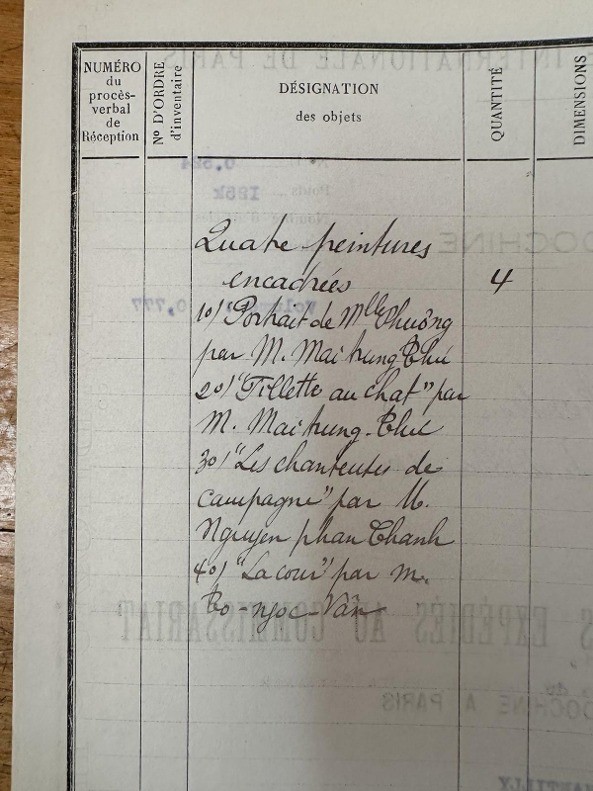 NUMÉRO
du
procès-
verbal
de
Réception
N° D'ORDRE
d'inventaire
DÉSIGNATION
des objets
QUANTITÉ
DIMENSIONS
Quatre peintures
encadrées 4
1o/ Portrait de Mlle Chuong
par M. Mai trung Thu
2o/ "Fillette au chat" par
M. Mai trung-Thu
3o/ "Les chanteuses de
campagne" par M.
Nguyen phan Chanh
4o/ "La cour" par M.
To-ngoc-Vân